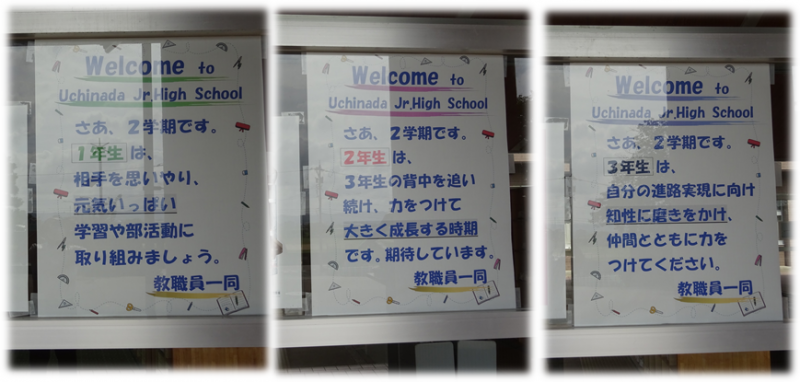 Welcome to
Uchinada Jr,High School
さあ、2学期です。
1年生は、
相手を思いやり、
元気いっぱい
学習や部活動に
取り組みましょう。
教職員一同
Welcome to
Uchinada Jr,High School
さあ、2学期です。
2年生は、
3年生の背中を追い
続け、力をつけて
大きく成長する時期
です。期待しています。
教職員一同
Welcome to
Uchinada Jr,High School
さあ、2学期です。
3年生は、
自分の進路実現に向け
知性に磨きをかけ、
仲間とともに力を
つけてください。
教職員一同